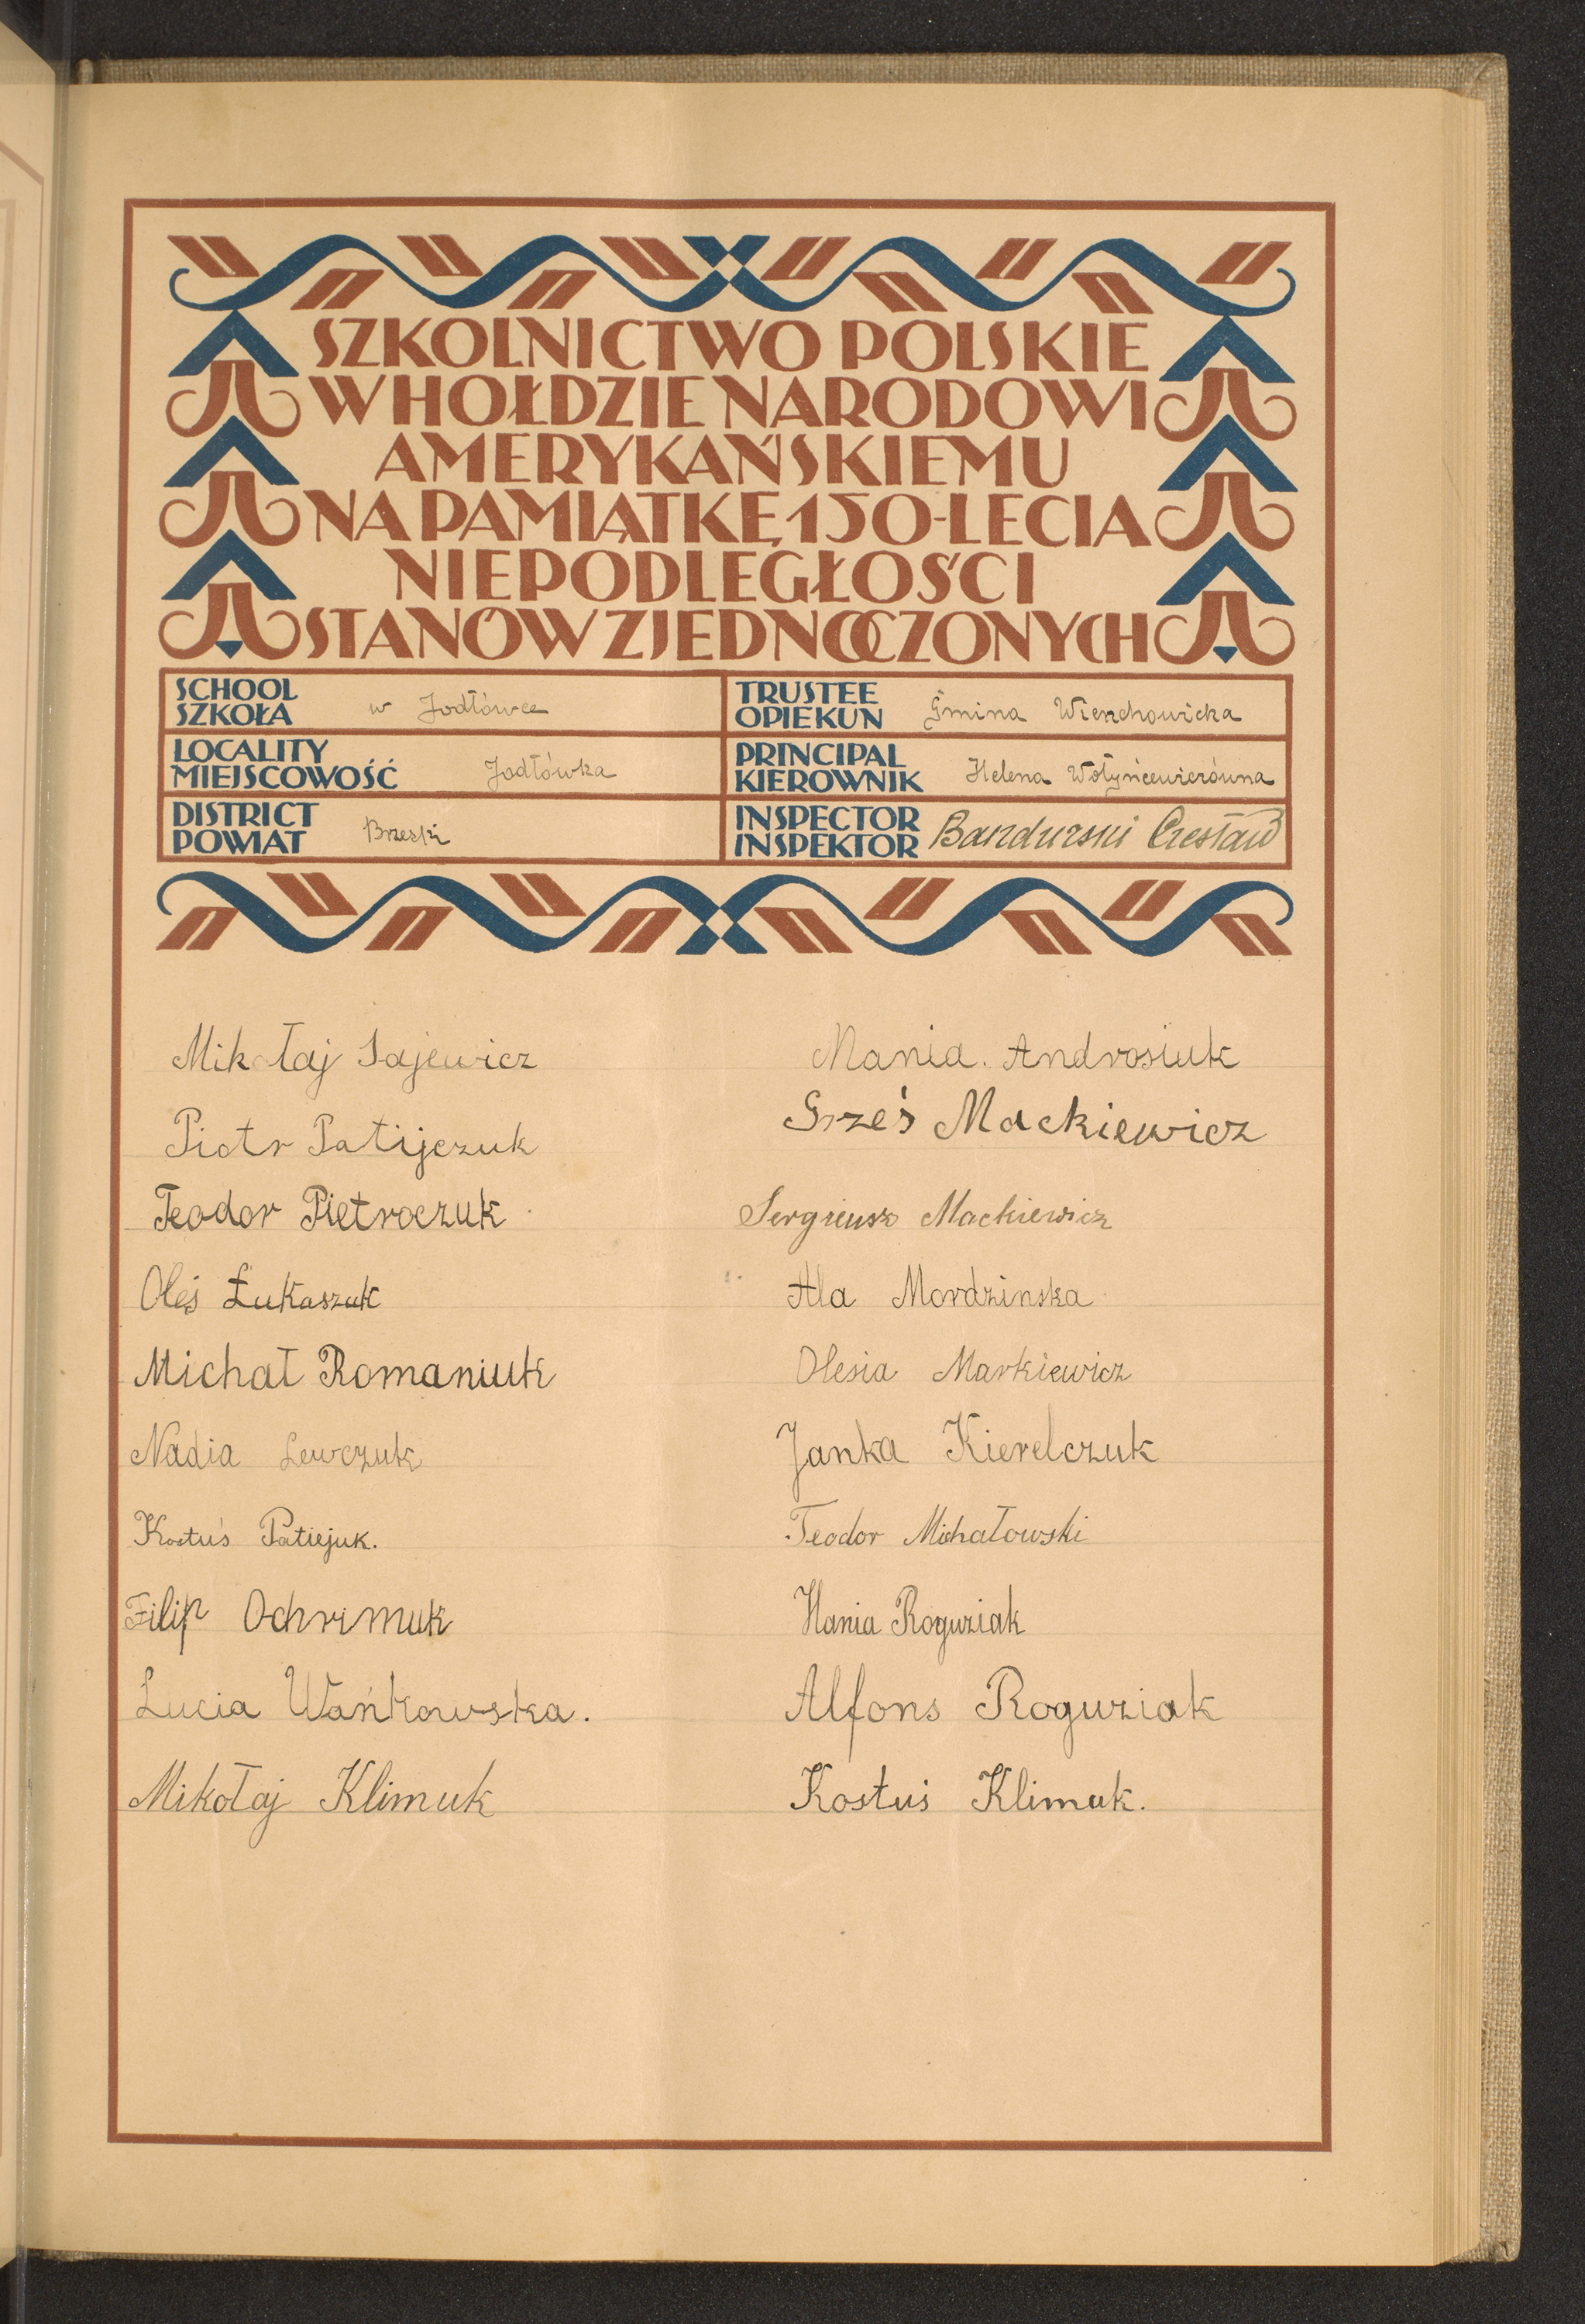 SZKOLNICTWO POLSKIE
W HOŁDZIE NARODOWI
AMERYKAŃSKIEMU
NA PAMIĄTKĘ 150-LECIA
NIEPODLEGŁOŚCI
STANÓW ZJEDNOCZONYCH
SCHOOL
SZKOŁA w Jodłówce
LOCALITY
MIEJSCOWOŚĆ Jodłówka
DISTRICT
POWIAT Brzeski
TRUSTEE
OPIEKUN Gmina Wierzchowicka
PRINCIPAL
KIEROWNIK Helena Wołyńcewiczówna
INSPECTOR
INSPEKTOR Bandurski Czesław
Mikołaj Sajewicz
Piotr Patijczuk
Teodor Pietroczuk
Oleś Łukaszuk
Michał Romaniuk
Nadia Lewczuk
Kostuś Patiejuk.
Filip Ochrimuk
Lucia Wańkowska.
Mikołaj Klimuk
Mania. Androsiuk
Grześ Mackiewicz
Sergiusz Mackiewicz
Ala Mordzinska
Olesia Markiewicz
Janka Kierelczuk
Teodor Michałowski
Hania Roguziak
Alfons Roguziak
Kostuś Klimuk.